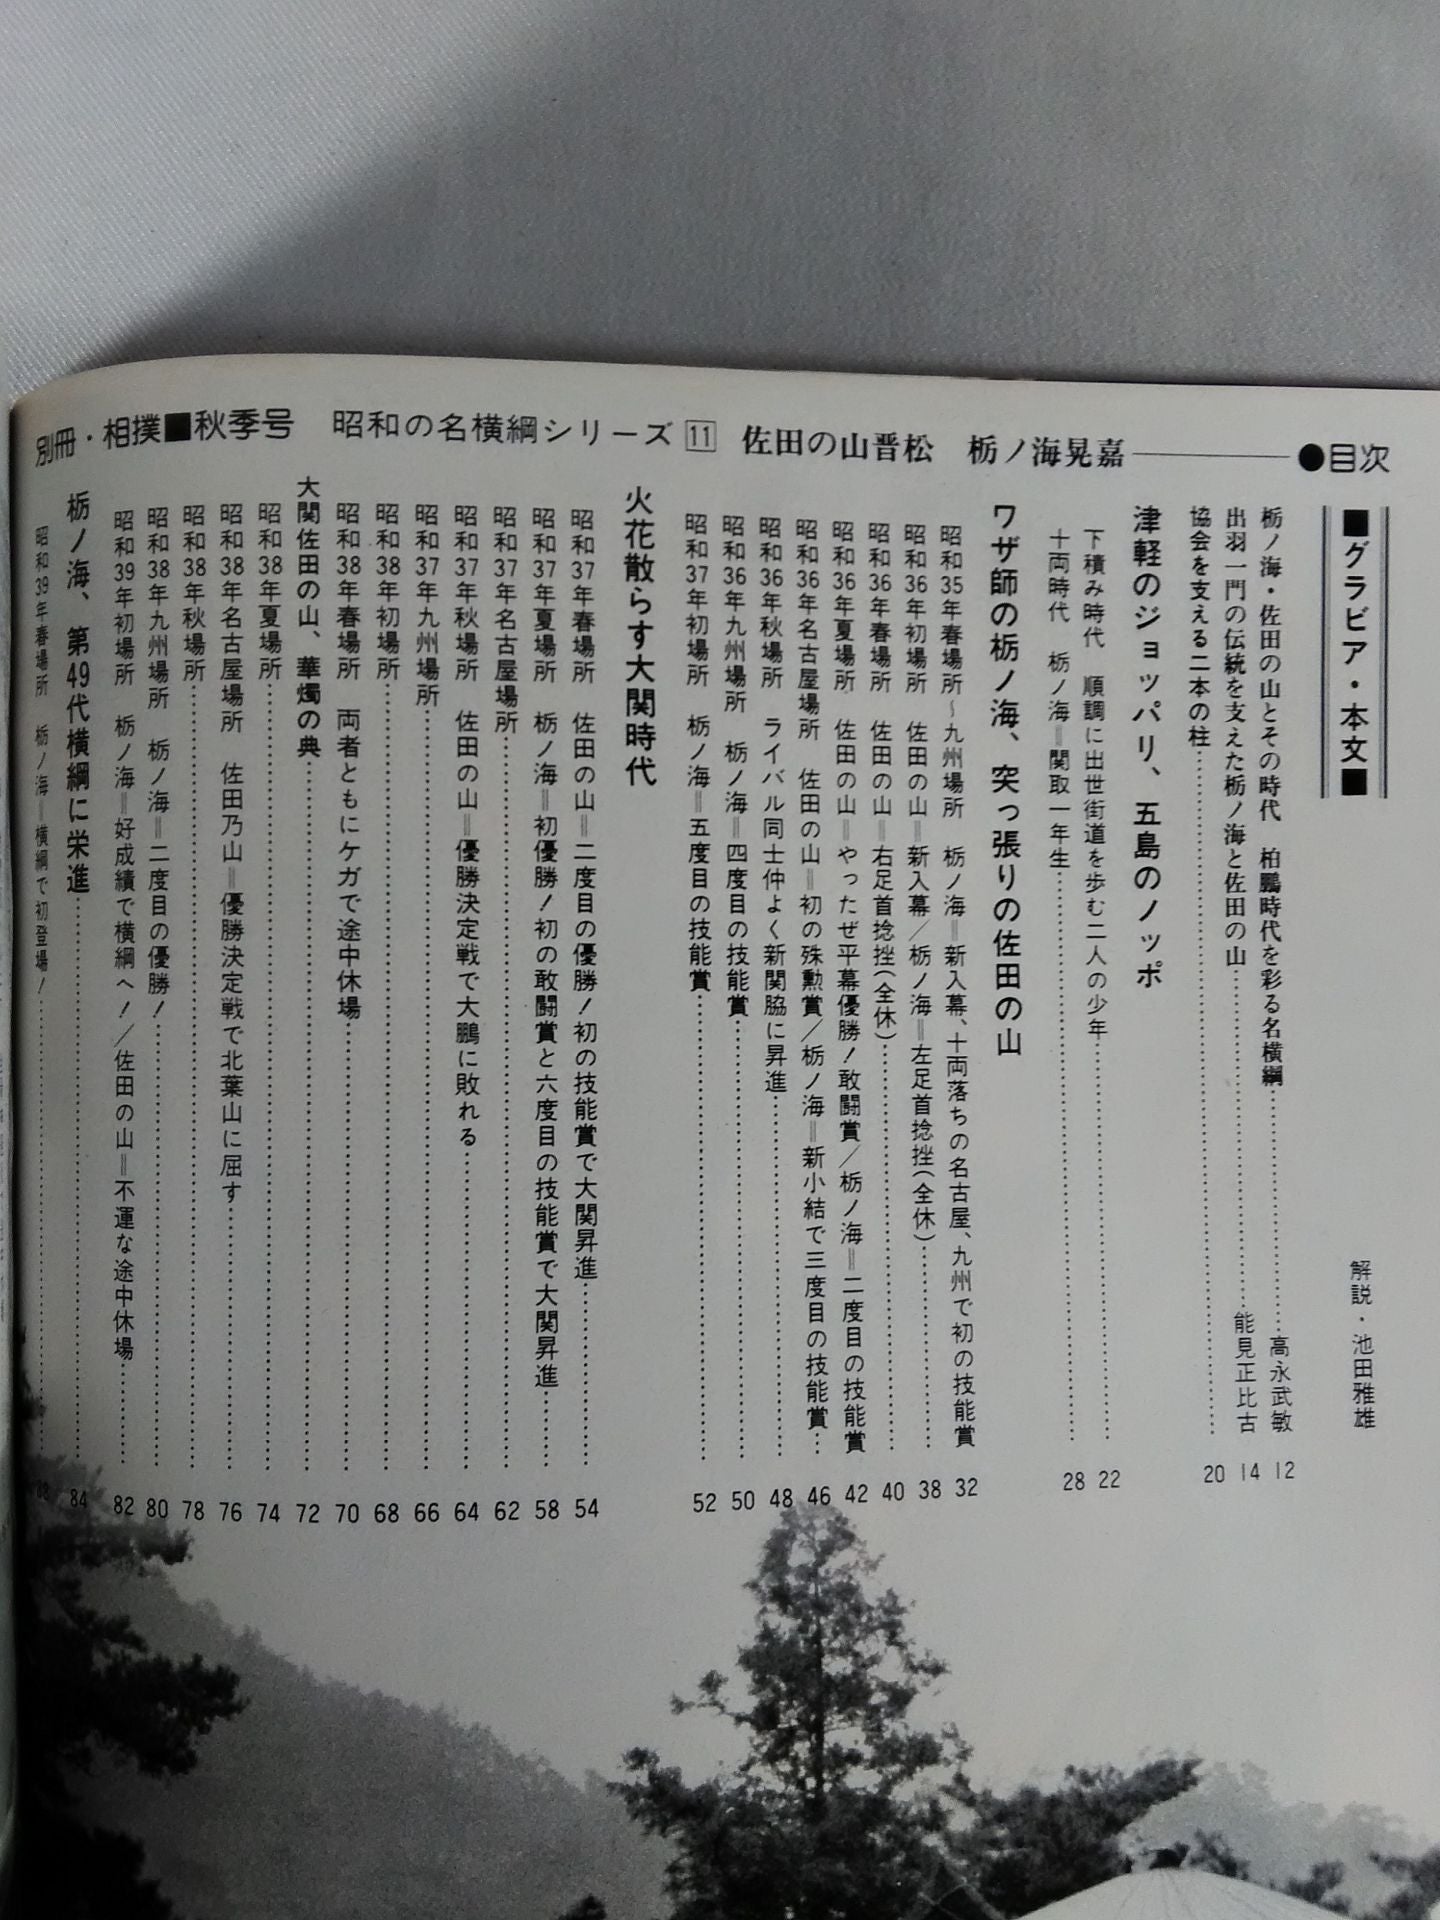 別冊・相撲■秋季号　昭和の名横綱シリーズ 11　佐田の山晋松　栃ノ海晃嘉――●目次
■グラビア・本文■　解説・池田雅雄
栃ノ海・佐田の山とその時代　柏鵬時代を彩る名横綱……高永武敏 12
出羽一門の伝統を支えた栃ノ海と佐田の山……能見正比古 14
協会を支える二本の柱……20
津軽のジョッパリ、五島のノッポ
下積み時代　順調に出世街道を歩む二人の少年……22
十両時代　栃ノ海＝関取一年生……28
ワザ師の栃ノ海、突っ張りの佐田の山
昭和35年春場所〜九州場所　栃ノ海＝新入幕、十両落ちの名古屋、九州で初の技能賞 32
昭和36年初場所　佐田の山＝新入幕／栃ノ海＝左足首捻挫(全休)……38
昭和36年春場所　佐田の山＝右足首捻挫(全休)……40
昭和36年夏場所　佐田の山＝やったぜ平幕優勝！敢闘賞／栃ノ海＝二度目の技能賞 42
昭和36年名古屋場所　佐田の山＝初の殊勲賞／栃ノ海＝新小結で三度目の技能賞…46
昭和36年秋場所　ライバル同士仲よく新関脇に昇進……48
昭和36年九州場所　栃ノ海＝四度目の技能賞……50
昭和37年初場所　栃ノ海＝五度目の技能賞……52
火花散らす大関時代
昭和37年春場所　佐田の山＝二度目の優勝！初の技能賞で大関昇進……54
昭和37年夏場所　栃ノ海＝初優勝！初の敢闘賞と六度目の技能賞で大関昇進……58
昭和37年名古屋場所……62
昭和37年秋場所　佐田の山＝優勝決定戦で大鵬に敗れる……64
昭和37年九州場所……66
昭和38年初場所……68
昭和38年春場所　両者ともにケガで途中休場……70
大関佐田の山、華燭の典……72
昭和38年夏場所……74
昭和38年名古屋場所　佐田乃山＝優勝決定戦で北葉山に屈す……76
昭和38年秋場所……78
昭和38年九州場所　栃ノ海＝二度目の優勝！……80
昭和39年初場所　栃ノ海＝好成績で横綱へ！／佐田の山＝不運な途中休場……82
栃ノ海、第49代横綱に栄進……84
昭和39年春場所　栃ノ海＝横綱で初登場！……88